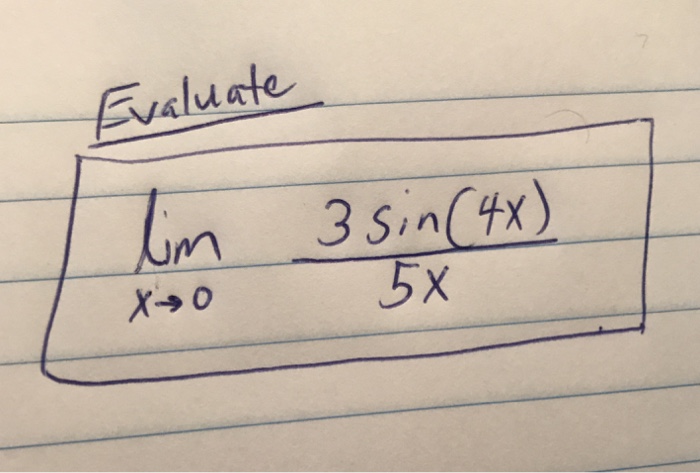 Evaluate
lim x→0 3 sin(4x) / 5x